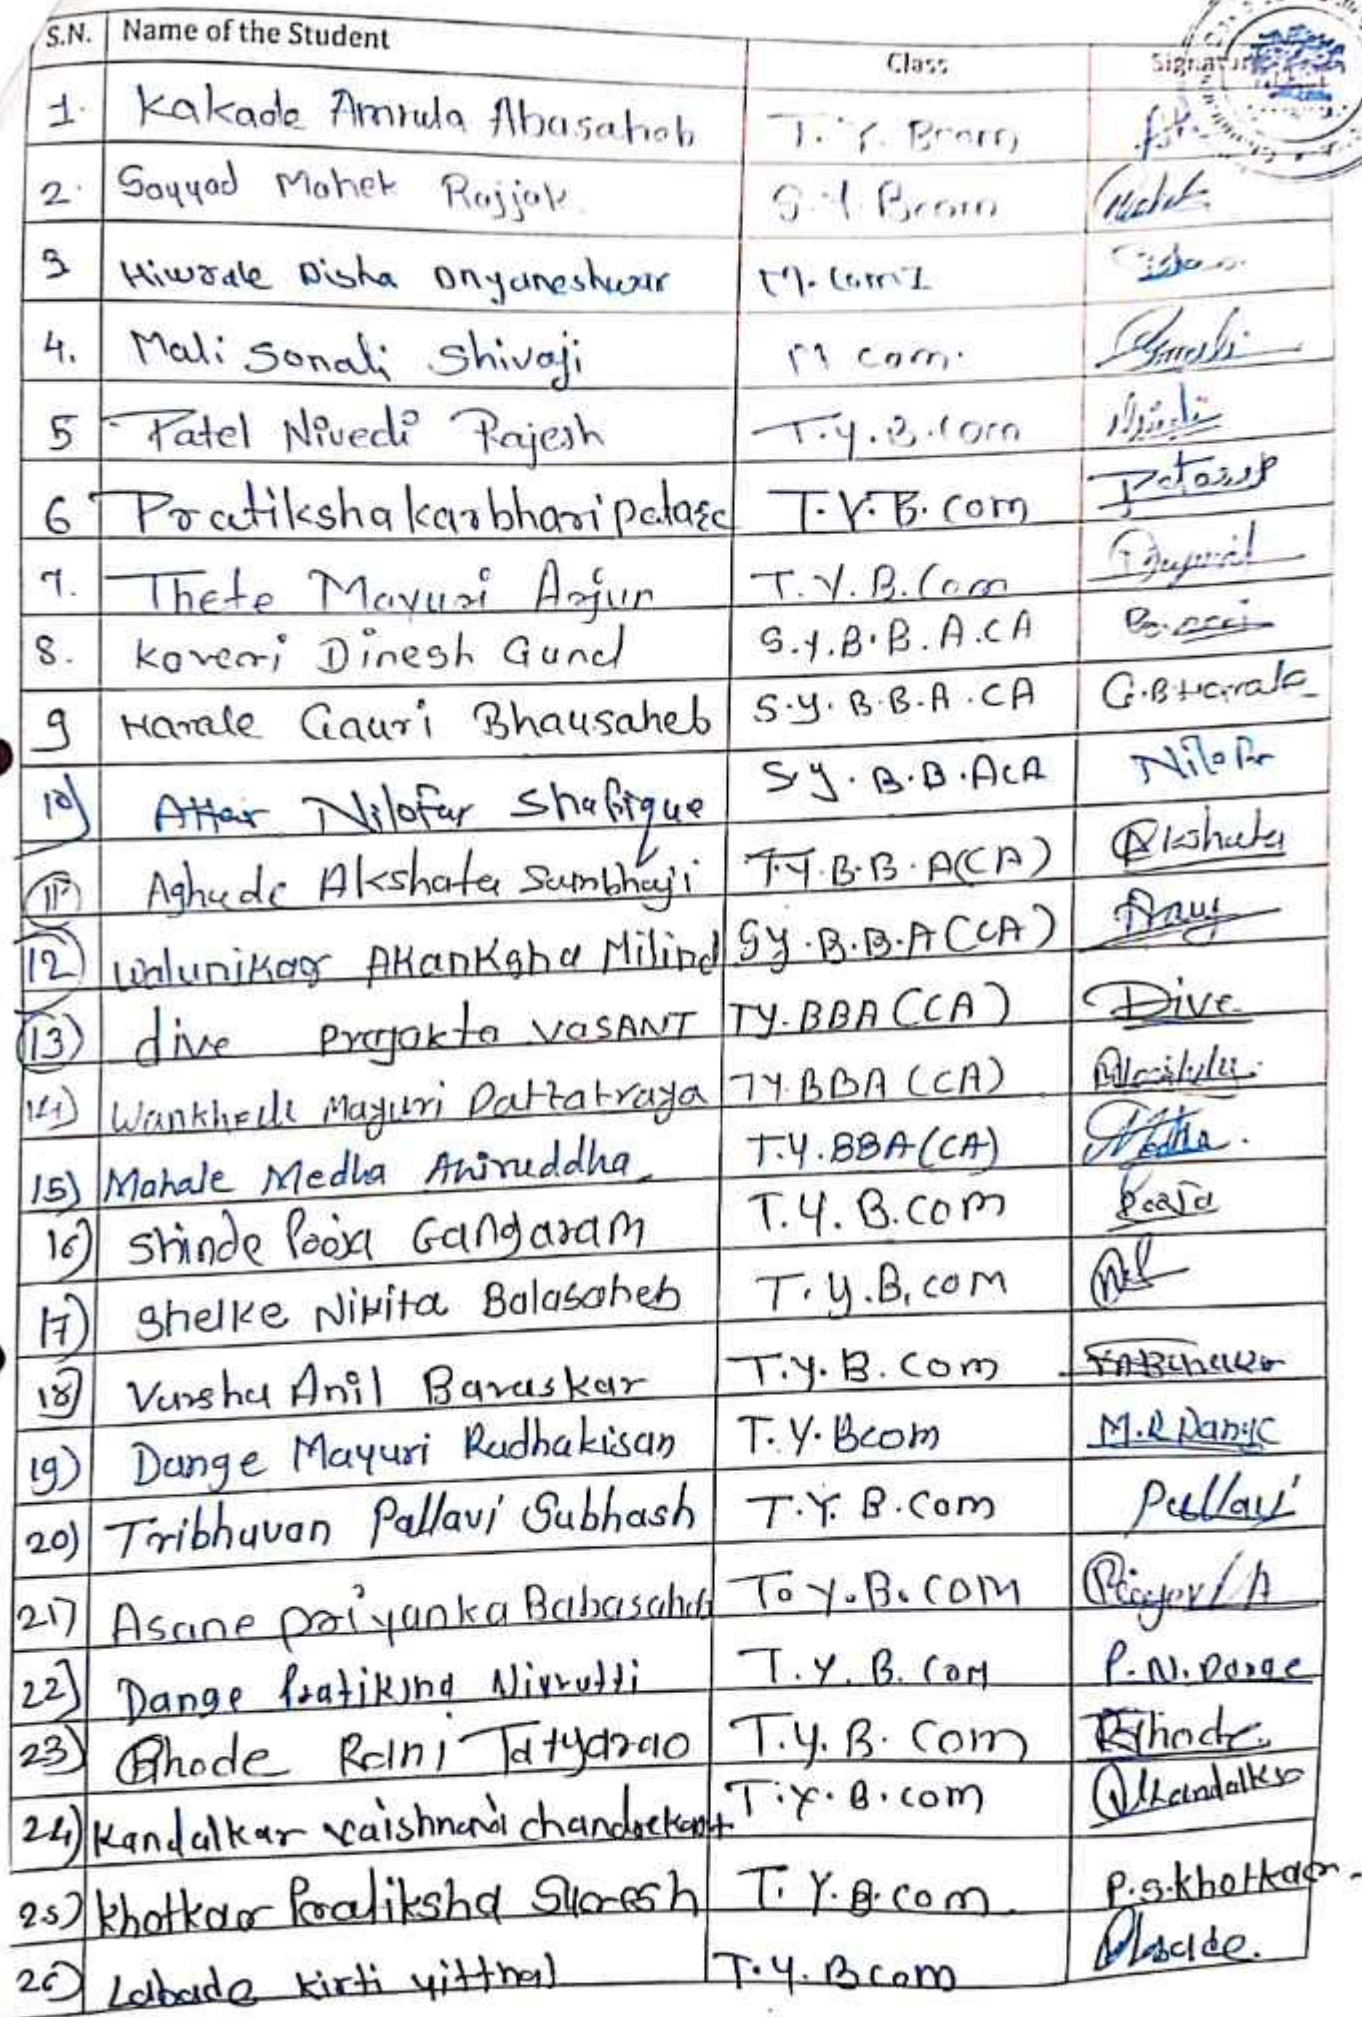 S.N. Name of the Student Class
1. Kakade Amruta Abasaheb T. Y. Bcom
2. Sayyad Mahek Rajjak S.Y. Bcom Mahek
3 Hiwrale Disha Dnyaneshwar M. Com I
4. Mali Sonali Shivaji M com. Smali
5 Patel Nivedi Rajesh T.y.B.com
6 Pratiksha karbhari T.Y.B.com
7. Thete Mayuri Arjun T.Y.B.Com
8. Kaveri Dinesh Gund S.Y.B.B.A.CA
9 Harale Gauri Bhausaheb S.y.B.B.A.CA G.B Harale
10) Attar Nilofar Shafique S.y.B.B.ACA Nilofr
11) Aghade Akshata Sambhaji T.Y.B.B.A(CA) Akshata
12) Walunikar Akanksha Milind Sy.B.B.A(CA)
13) dive Prajakta VASANT TY.BBA(CA) Dive
14) Wankhede Mayuri Dattatraya TY.BBA(CA)
15) Mahale Medha Aniruddha T.Y.BBA(CA) Medha.
16) Shinde Pooja Gangaram T.Y.B.COM Pooja
17) Shelke Nikita Balasaheb T.y.B.com
18) Varsha Anil Bavaskar T.y.B.Com
19) Dange Mayuri Radhakisan T.Y.Bcom M.R Dange
20) Tribhuvan Pallavi Subhash T.Y.B.Com Pallavi
21) Asane Priyanka Babasaheb T.Y.B.COM
22) Dange Pratiksha Nivrutti T.Y.B.Com P.N.Dange
23) Bhode Rani Tatyarao T.Y.B.Com RBhode.
24) Kandalkar vaishnavi chandrakant T.Y.B.com VKandalkar
25) Khotkar Pratiksha Suresh T.Y.B.com P.S.Khotkar.
26) Labade Kirti Vitthal T.Y.Bcom